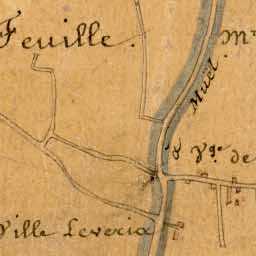 Feuille.
Mⁿ
Muël.
à Vᵍᵉ de
Ville Leveria